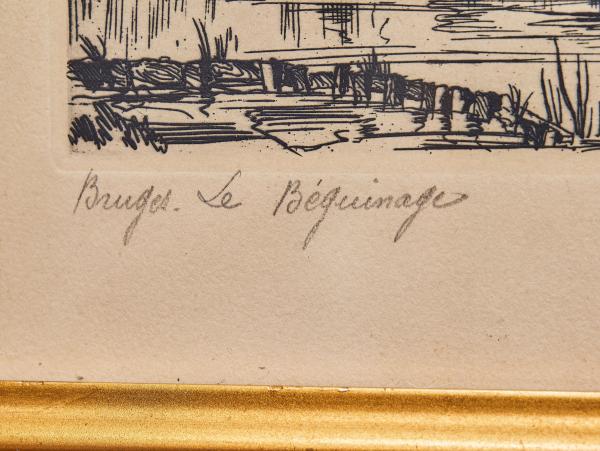 Bruges. Le Béguinage